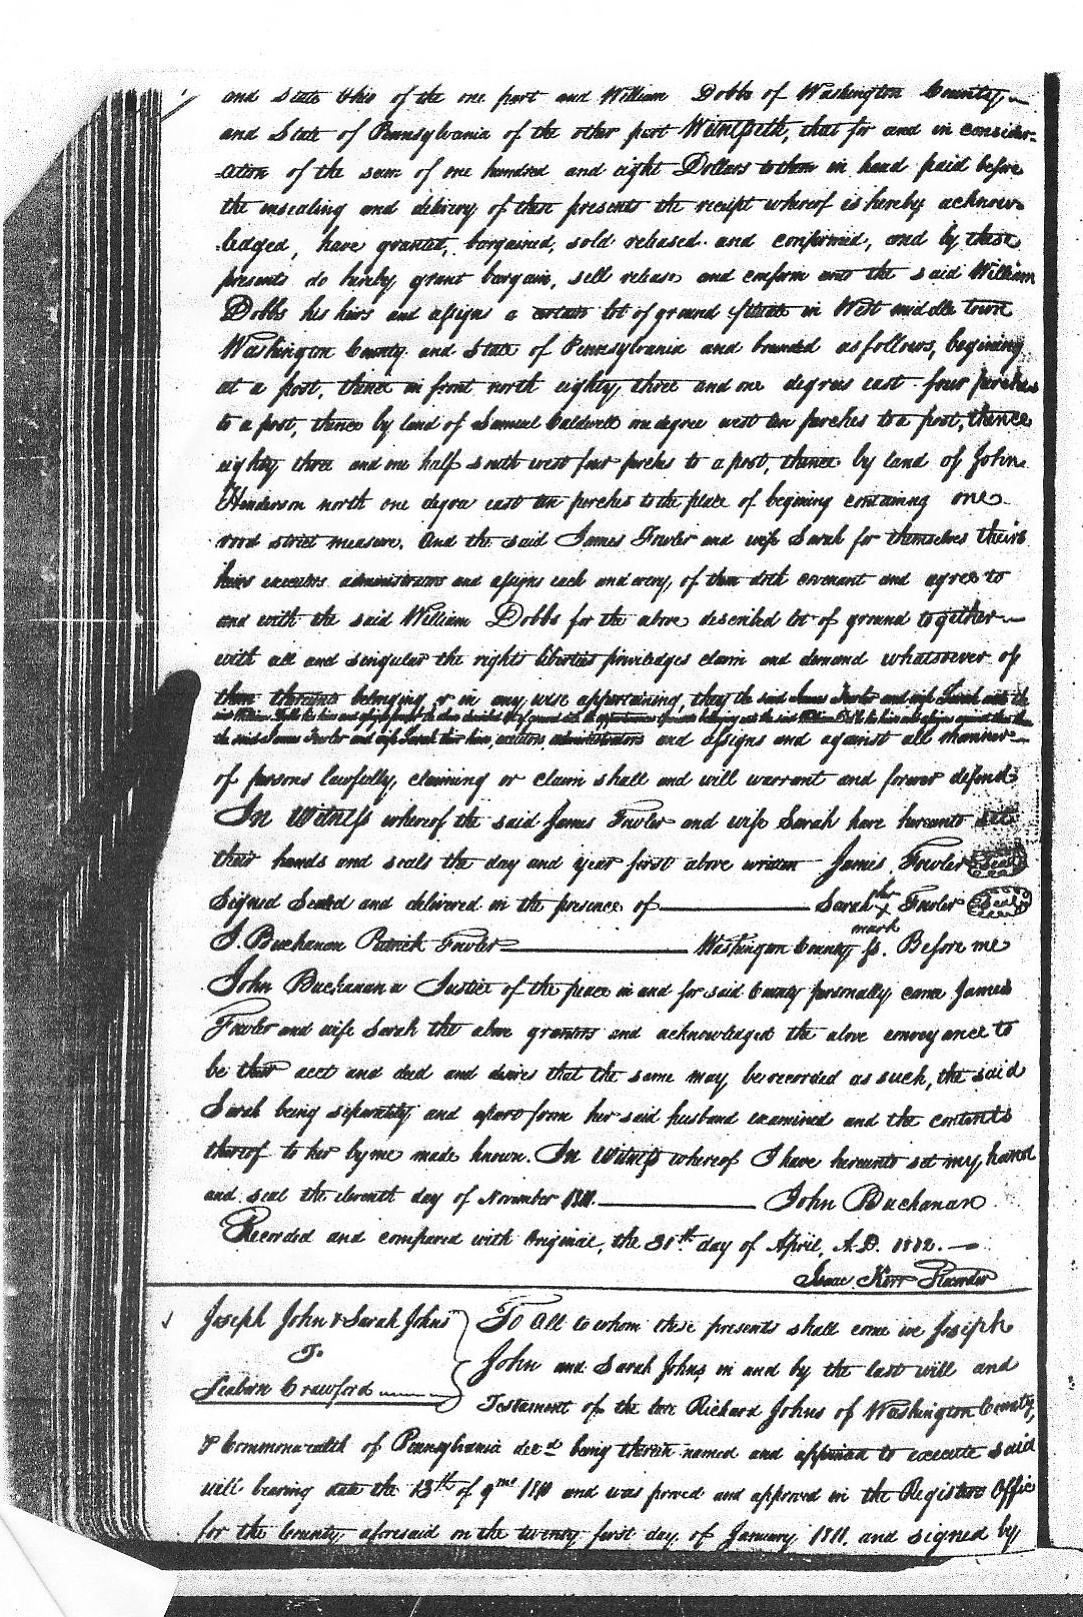 and State Ohio of the one part and William Dobbs of Washington County
and State of Pennsylvania of the other part Witnesseth, that for and in consider-
-ation of the sum of one hundred and eight Dollars to them in hand paid before
the ensealing and delivery of these presents the receipt whereof is hereby acknow-
ledged, have granted, bargained, sold released and confirmed, and by these
presents do hereby grant bargain, sell release and confirm unto the said William
Dobbs his heirs and assigns a certain lot of ground situate in West middle town
Washington County and State of Pennsylvania and bounded as follows, begining
at a post, thence in front north eighty three and one degrees east four perches
to a post, thence by land of Samuel Caldwell one degree west ten perches to a post, thence
eighty three and one half south west four perches to a post, thence by land of John
Henderson north one degree east ten perches to the place of begining containing one
rood strict measure. And the said James Fowler and wife Sarah for themselves theirs
heirs executors administrators and assigns each and every of them doth covenant and agree to
and with the said William Dobbs for the above described lot of ground together
with all and singular the rights liberties priviledges claim and demand whatsoever of
them thereunto belonging or in any wise appertaining, they the said James Fowler and wife Sarah
the said James Fowler and wife Sarah their heirs, executors, administrators and assigns and against all manner
of persons lawfully claiming or claim shall and will warrant and forever defend
In Witness whereof the said James Fowler and wife Sarah have hereunto set
their hands and seals the day and year first above written James Fowler Seal
Signed Sealed and delivered in the presence of Sarah her x mark Fowler Seal
J. Buchanan Patrick Fowler Washington County ss. Before me
John Buchanan a Justice of the peace in and for said County personally came James
Fowler and wife Sarah the above grantors and acknowledged the above conveyance to
be their acct and deed and desires that the same may be recorded as such, the said
Sarah being separately and apart from her said husband examined and the contents
thereof to her by me made known. In Witness whereof I have hereunto set my hand
and seal the eleventh day of November 1811. John Buchanan
Recorded and compared with Original, the 30th day of April, A.D. 1812.
Isaac Kerr Recorder
Joseph John & Sarah Johns To All to whom these presents shall come we Joseph
To John and Sarah Johns, in and by the last will and
Seaborn Crawford Testament of the late Richard Johns of Washington County,
& Commonwealth of Pennsylvania decd being therein named and appointed to execute said
will bearing date the 13th of 9mo 1810 and was proved and approved in the Registers Office
for the County aforesaid on the twenty first day of January 1811. and signed by